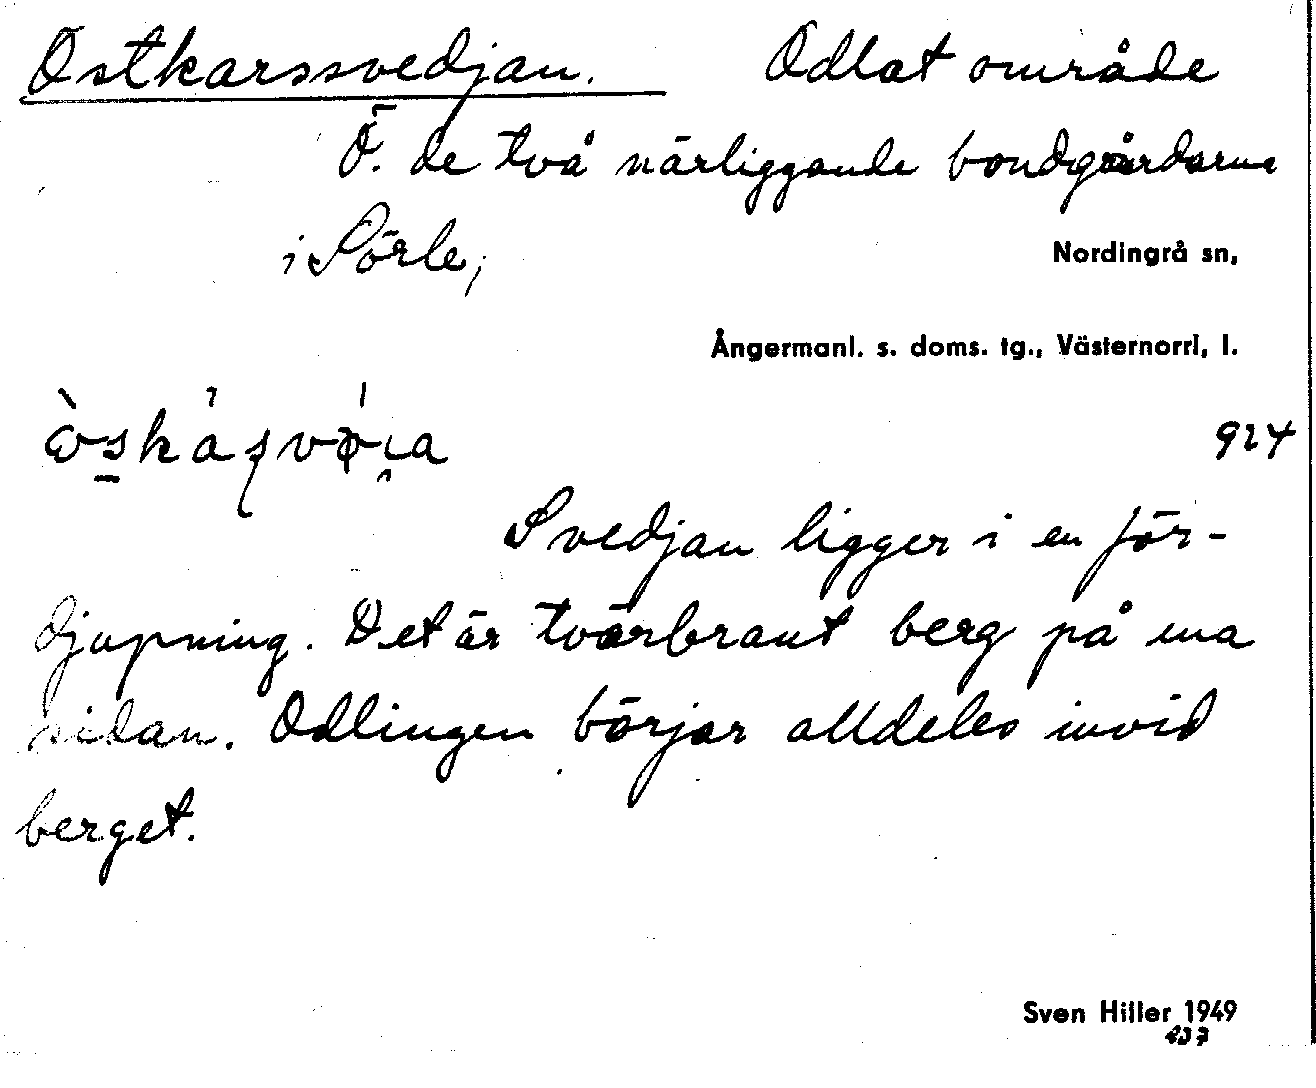 Ostkarssvedjan. Odlat område
Ö. de två närliggande bondgårdarna
i Sörle,
Nordingrå sn,
Ångermanl. s. doms. tg., Västernorrl, l.
924
Svedjan ligger i en för-
djupning. Det är tvärbrant berg på ena
sidan. Odlingen börjar alldeles invid
berget.
Sven Hiller 1949